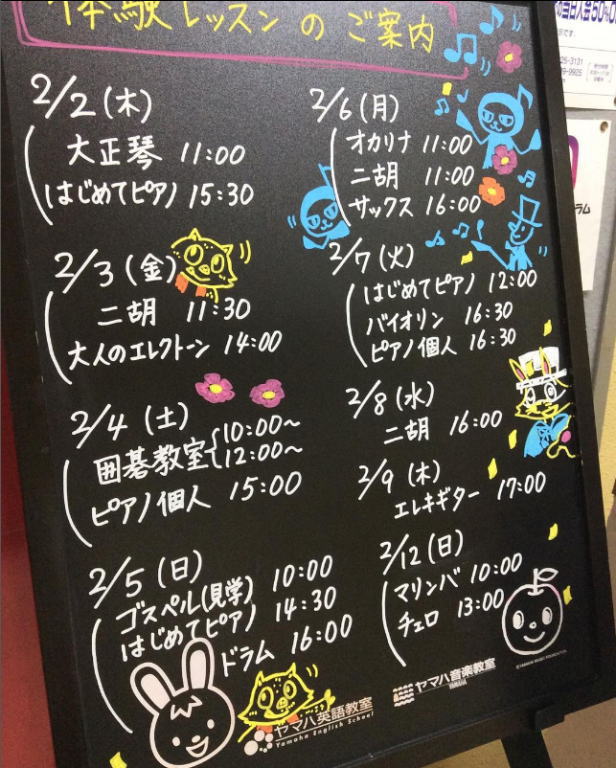 体験レッスンのご案内
2/2(木)
大正琴 11:00
はじめてピアノ 15:30
2/3(金)
二胡 11:30
大人のエレクトーン 14:00
2/4(土)
囲碁教室 10:00~
12:00~
ピアノ個人 15:00
2/5(日)
ゴスペル(見学) 10:00
はじめてピアノ 14:30
ドラム 16:00
ヤマハ英語教室
Yamaha English School
2/6(月)
オカリナ 11:00
二胡 11:00
サックス 16:00
2/7(火)
はじめてピアノ 12:00
バイオリン 16:30
ピアノ個人 16:30
2/8(水)
二胡 16:00
2/9(木)
エレキギター 17:00
2/12(日)
マリンバ 10:00
チェロ 13:00
ヤマハ音楽教室
YAMAHA
25-3131
9-9925
ラム